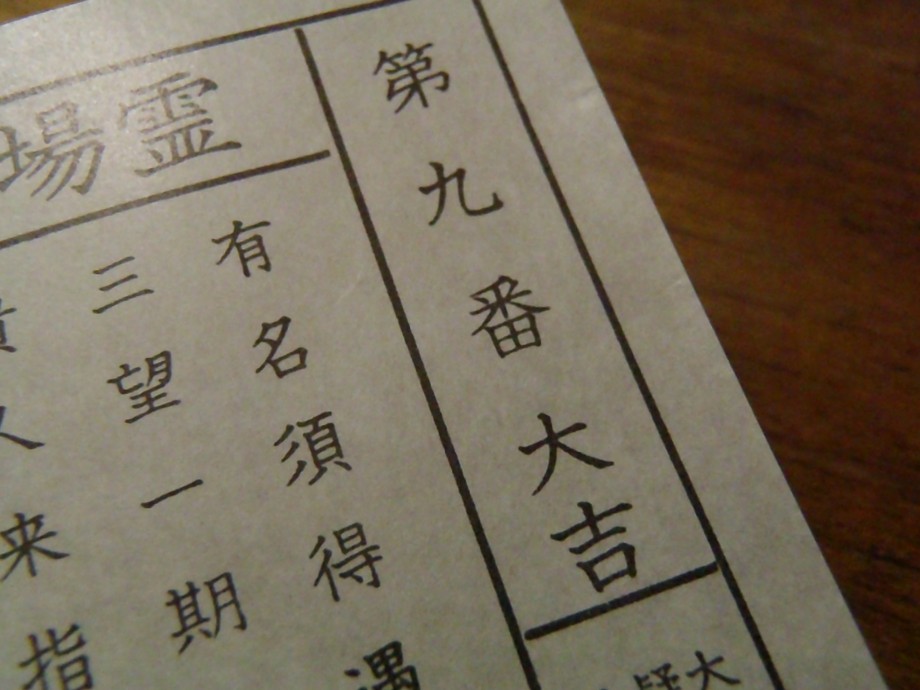 第九番大吉
霊場
有名須得遇
三望一期
人来指
大